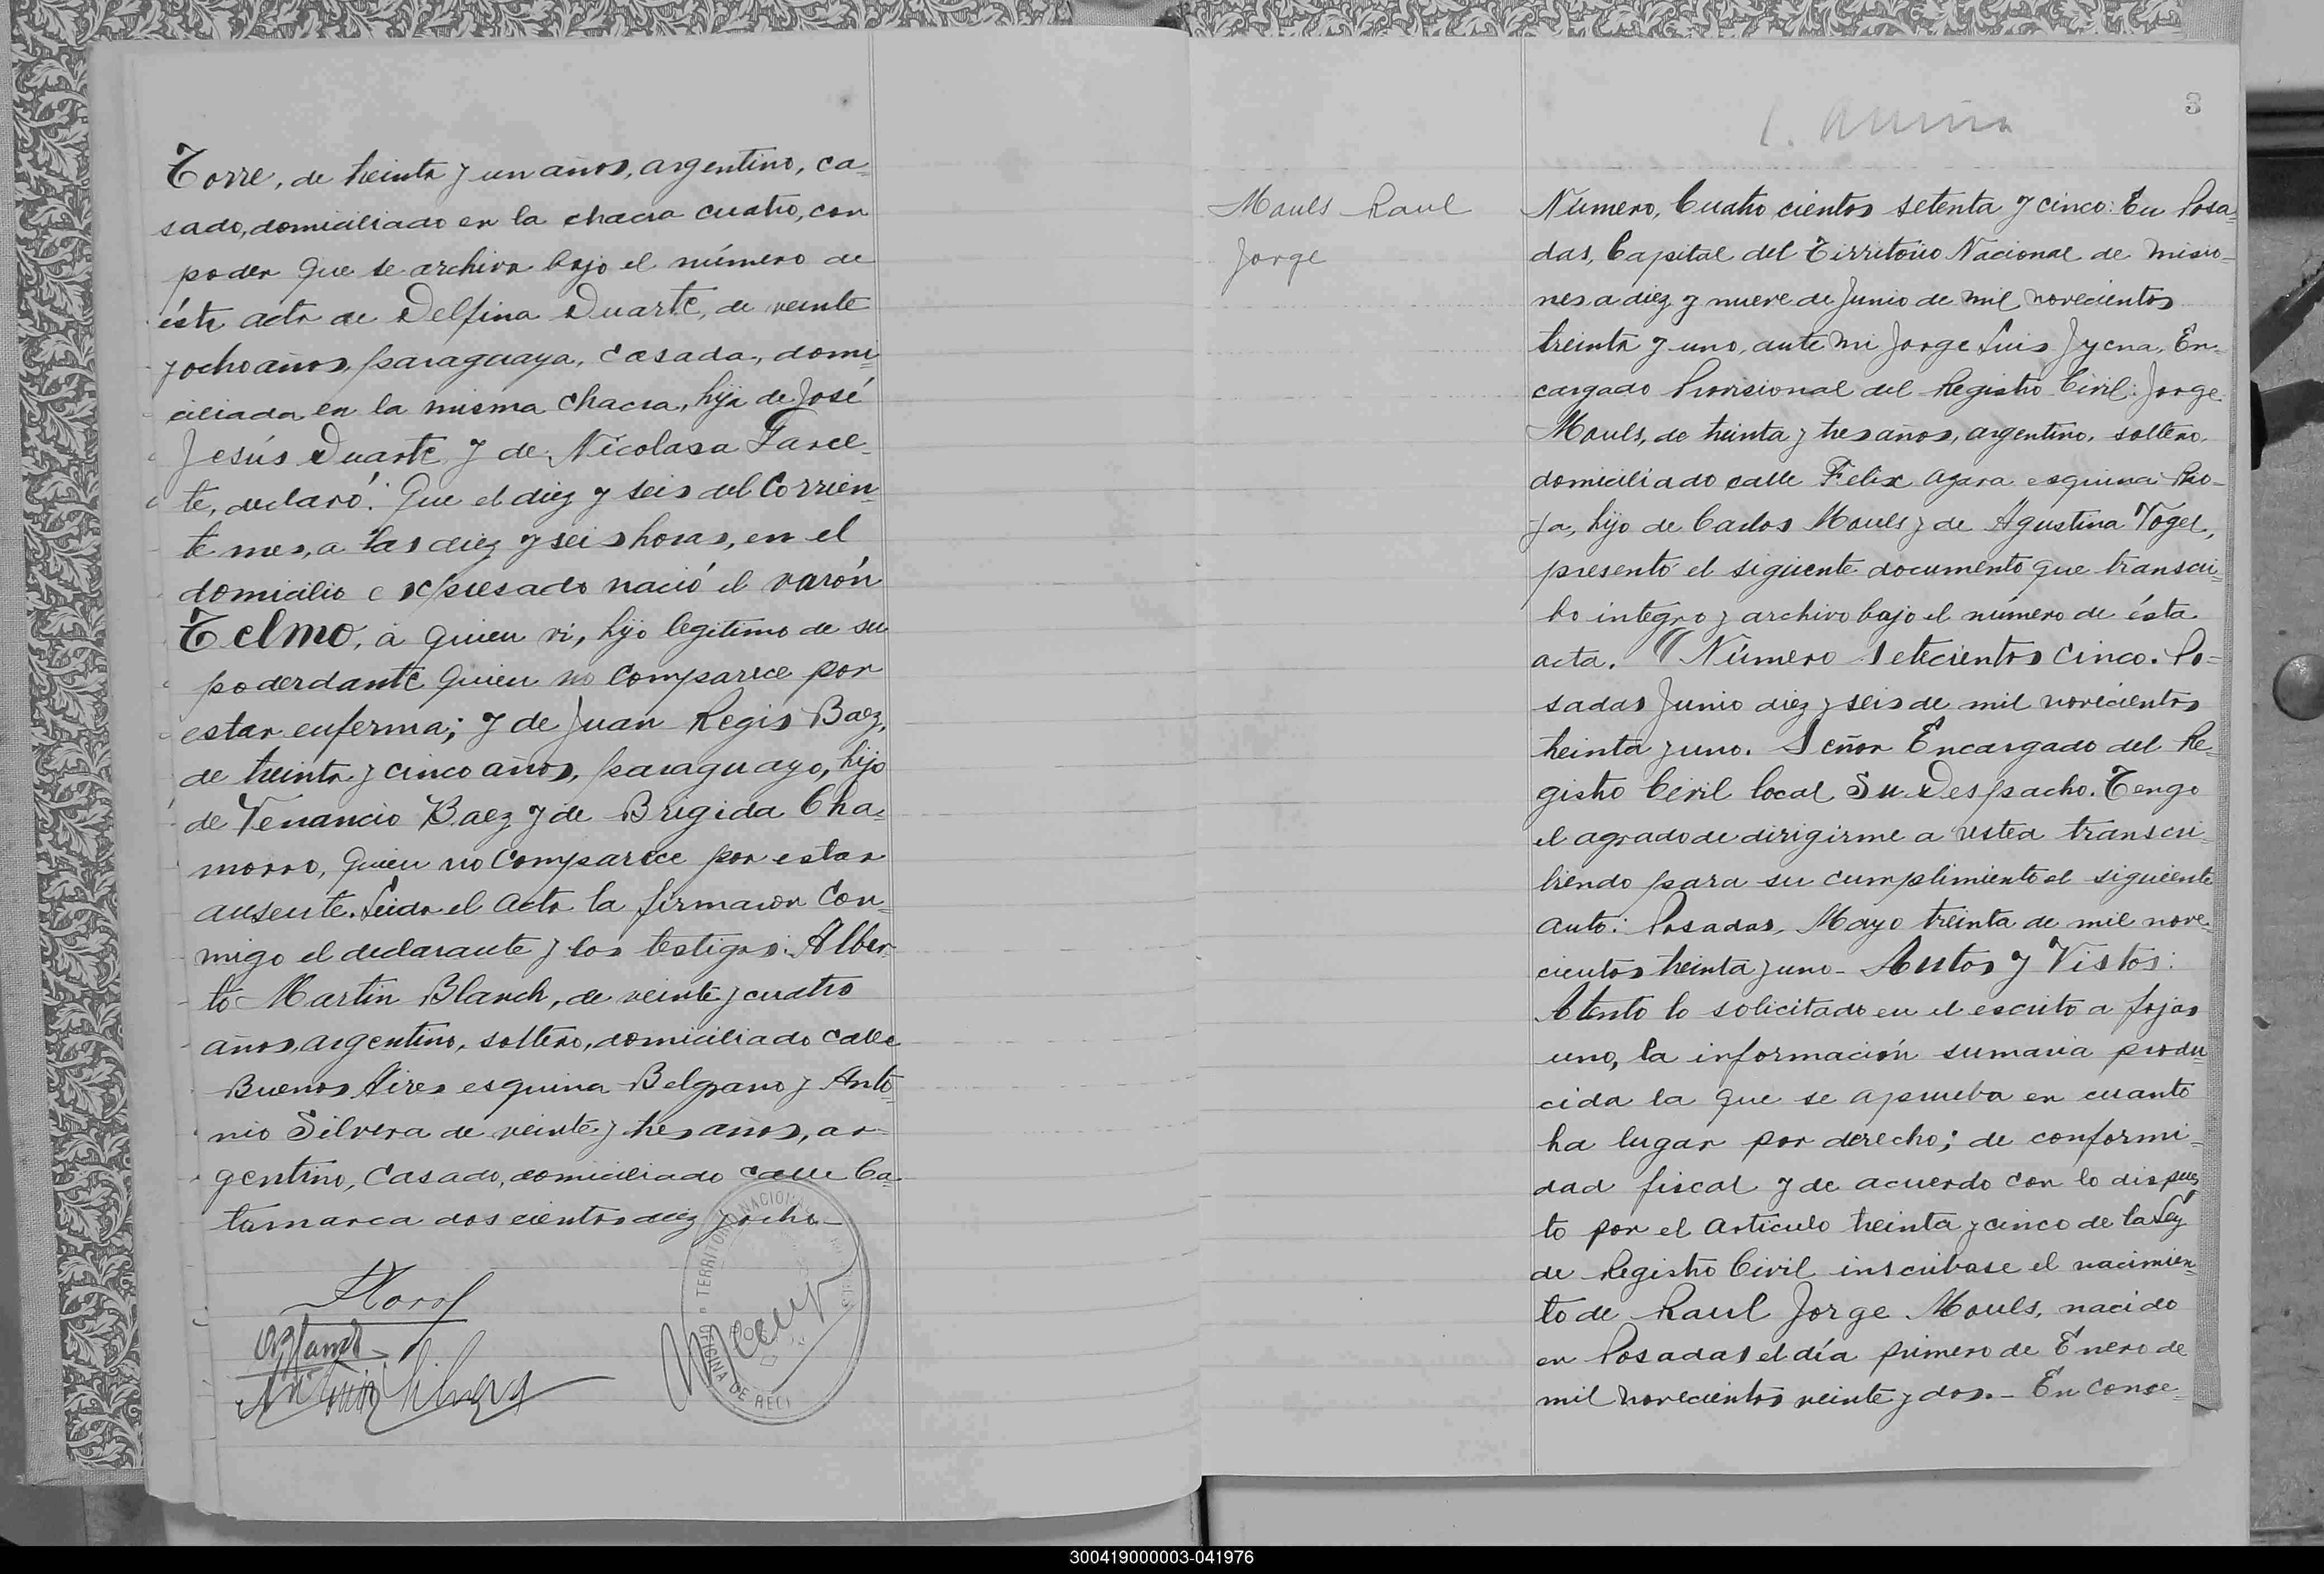 Torre, de treinta y un años, argentino, ca-
sado, domiciliado en la chacra cuatro, con
poder que se archiva bajo el número de
ésta acta de Delfina Duarte, de veinte
y ocho años, paraguaya, casada, domi-
ciliada en la misma chacra, hija de José
Jesús Duarte y de Nicolasa Farel-
te, declaró: Que el diez y seis del corrien-
te mes, a las diez y seis horas, en el
domicilio expresado nació el varón
Telmo, a quien vi, hijo legitimo de su
poderdante quien no comparece por
estar enferma; y de Juan Regis Baez,
de treinta y cinco años, paraguayo, hijo
de Venancio Baez y de Brigida Cha-
morro, quien no comparece por estar
ausente. Leida el acta la firmaron con-
migo el declarante y los testigos: Alber-
to Martin Blanch, de veinte y cuatro
años, argentino, soltero, domiciliado calle
Buenos Aires esquina Belgrano y Anto-
nio Silvera de veinte y tres años, ar-
gentino, casado, domiciliado calle Ca-
tamarca dos cientos diez y ocho
TERRITORIO NACIONAL
Antonio Silvera
3
Mouls Raul
Jorge
Número, Cuatro cientos setenta y cinco: En Posa-
das, Capital del Territorio Nacional de Misio-
nes a diez y nueve de Junio de mil novecientos
treinta y uno, ante mi Jorge Luis Jycna, En-
cargado Provisional del Registro Civil: Jorge
Mouls, de treinta y tres años, argentino, soltero,
domiciliado calle Felix Azara esquina Rio-
ja, hijo de Carlos Mouls y de Agustina Vogel,
presentó el siguiente documento que transcri-
bo integro y archivo bajo el número de ésta
acta. "Número setecientos cinco. Po-
sadas Junio diez y seis de mil novecientos
treinta y uno. Señor Encargado del Re-
gistro Civil local Su Despacho. Tengo
el agrado de dirigirme a usted transcri-
biendo para su cumplimiento el siguiente
auto: Posadas, Mayo treinta de mil nove-
cientos treinta y uno- Autos y Vistos:
Atento lo solicitado en el escrito a fojas
uno, la información sumaria produ-
cida la que se aprueba en cuanto
ha lugar por derecho; de conformi-
dad fiscal y de acuerdo con lo dispues
to por el artículo treinta y cinco de la Ley
de Registro Civil inscribase el nacimien-
to de Raul Jorge Mouls, nacido
en Posadas el día primero de Enero de
mil novecientos veinte y dos.- En conse-
300419000003-041976